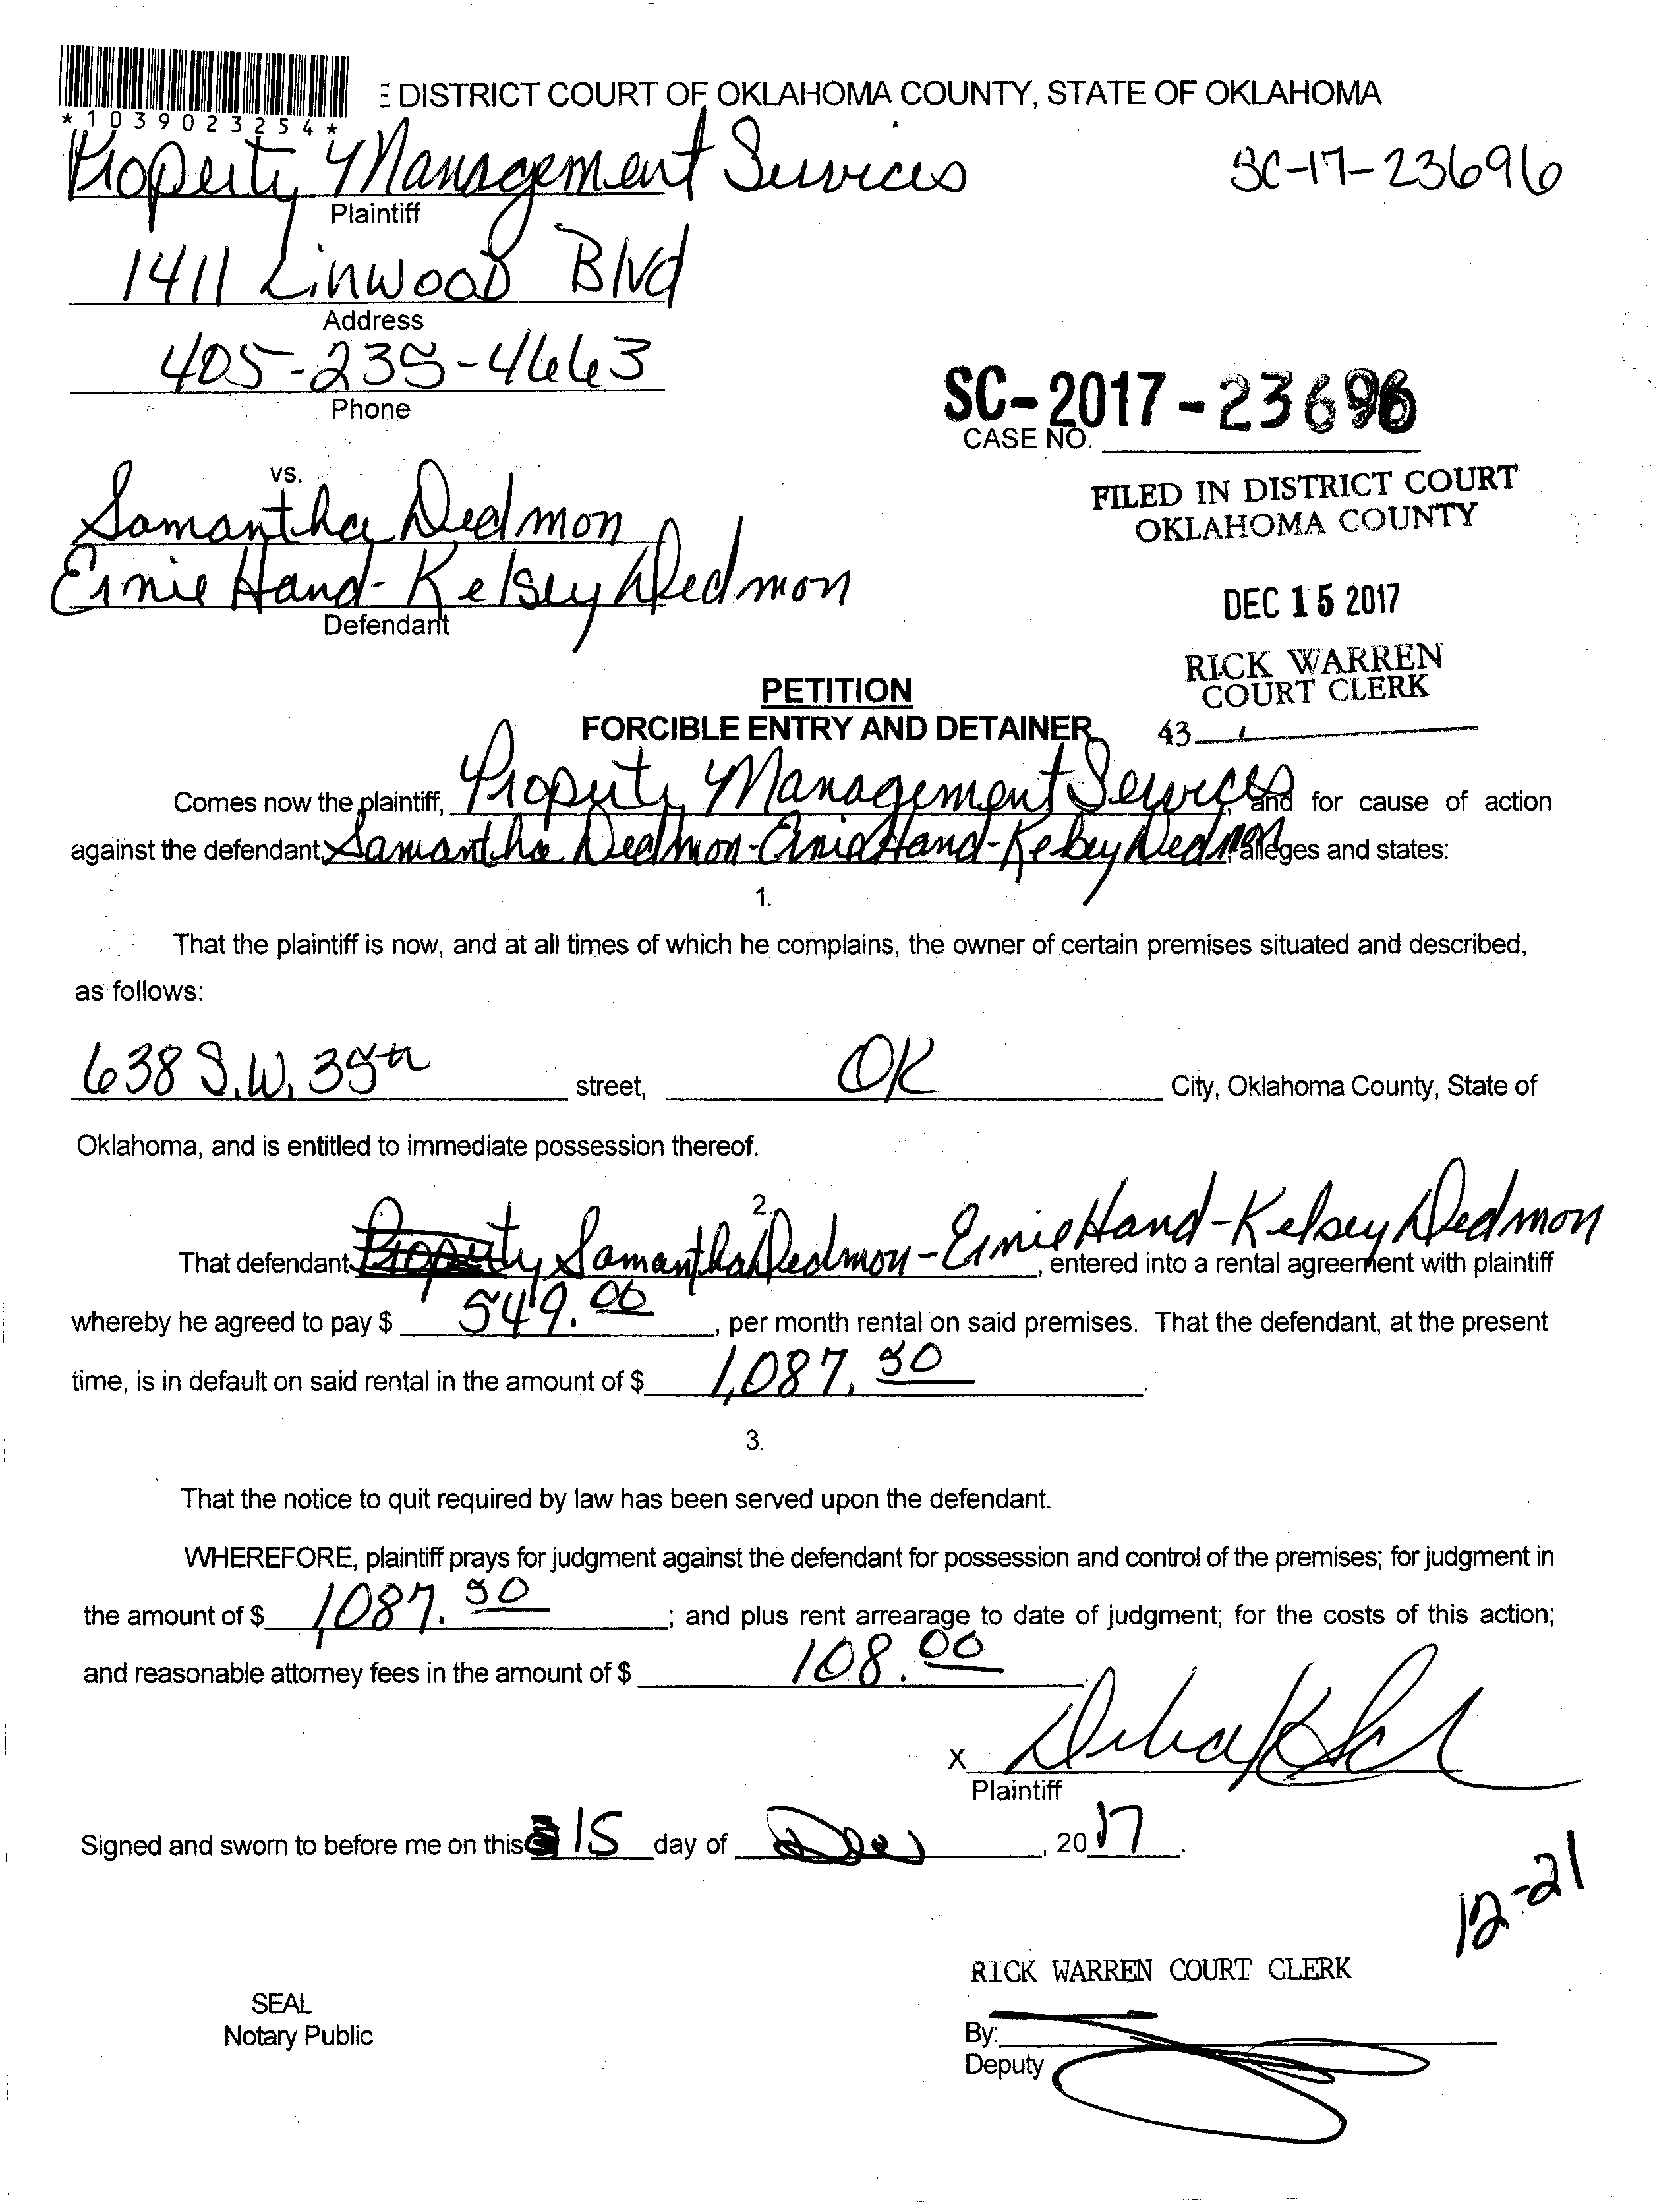 E DISTRICT COURT OF OKLAHOMA COUNTY, STATE OF OKLAHOMA
*1039023254*
Property Management Services
SC-17-23696
Plaintiff
1411 Linwood Blvd
Address
405-235-4663
Phone
SC-2017-23696
CASE NO.
vs.
FILED IN DISTRICT COURT
OKLAHOMA COUNTY
Samantha Dedmon
Ernie Hand-Kelsey Dedmon
Defendant
DEC 15 2017
RICK WARREN
COURT CLERK
43
PETITION
FORCIBLE ENTRY AND DETAINER
Comes now the plaintiff, Property Management Services and for cause of action
against the defendant, Samantha Dedmon-Ernie Hand-Kelsey Dedmon, alleges and states:
1.
That the plaintiff is now, and at all times of which he complains, the owner of certain premises situated and described,
as follows:
638 S.W. 35th street, OK City, Oklahoma County, State of
Oklahoma, and is entitled to immediate possession thereof.
2.
That defendant Property Samantha Dedmon-Ernie Hand-Kelsey Dedmon, entered into a rental agreement with plaintiff
whereby he agreed to pay $ 549.00, per month rental on said premises. That the defendant, at the present
time, is in default on said rental in the amount of $ 1,087.50.
3.
That the notice to quit required by law has been served upon the defendant.
WHEREFORE, plaintiff prays for judgment against the defendant for possession and control of the premises; for judgment in
the amount of $ 1,087.50; and plus rent arrearage to date of judgment; for the costs of this action;
and reasonable attorney fees in the amount of $ 108.00.
X
Plaintiff
Signed and sworn to before me on this 15 day of Dec, 2017.
12-21
RICK WARREN COURT CLERK
SEAL
Notary Public
By:
Deputy